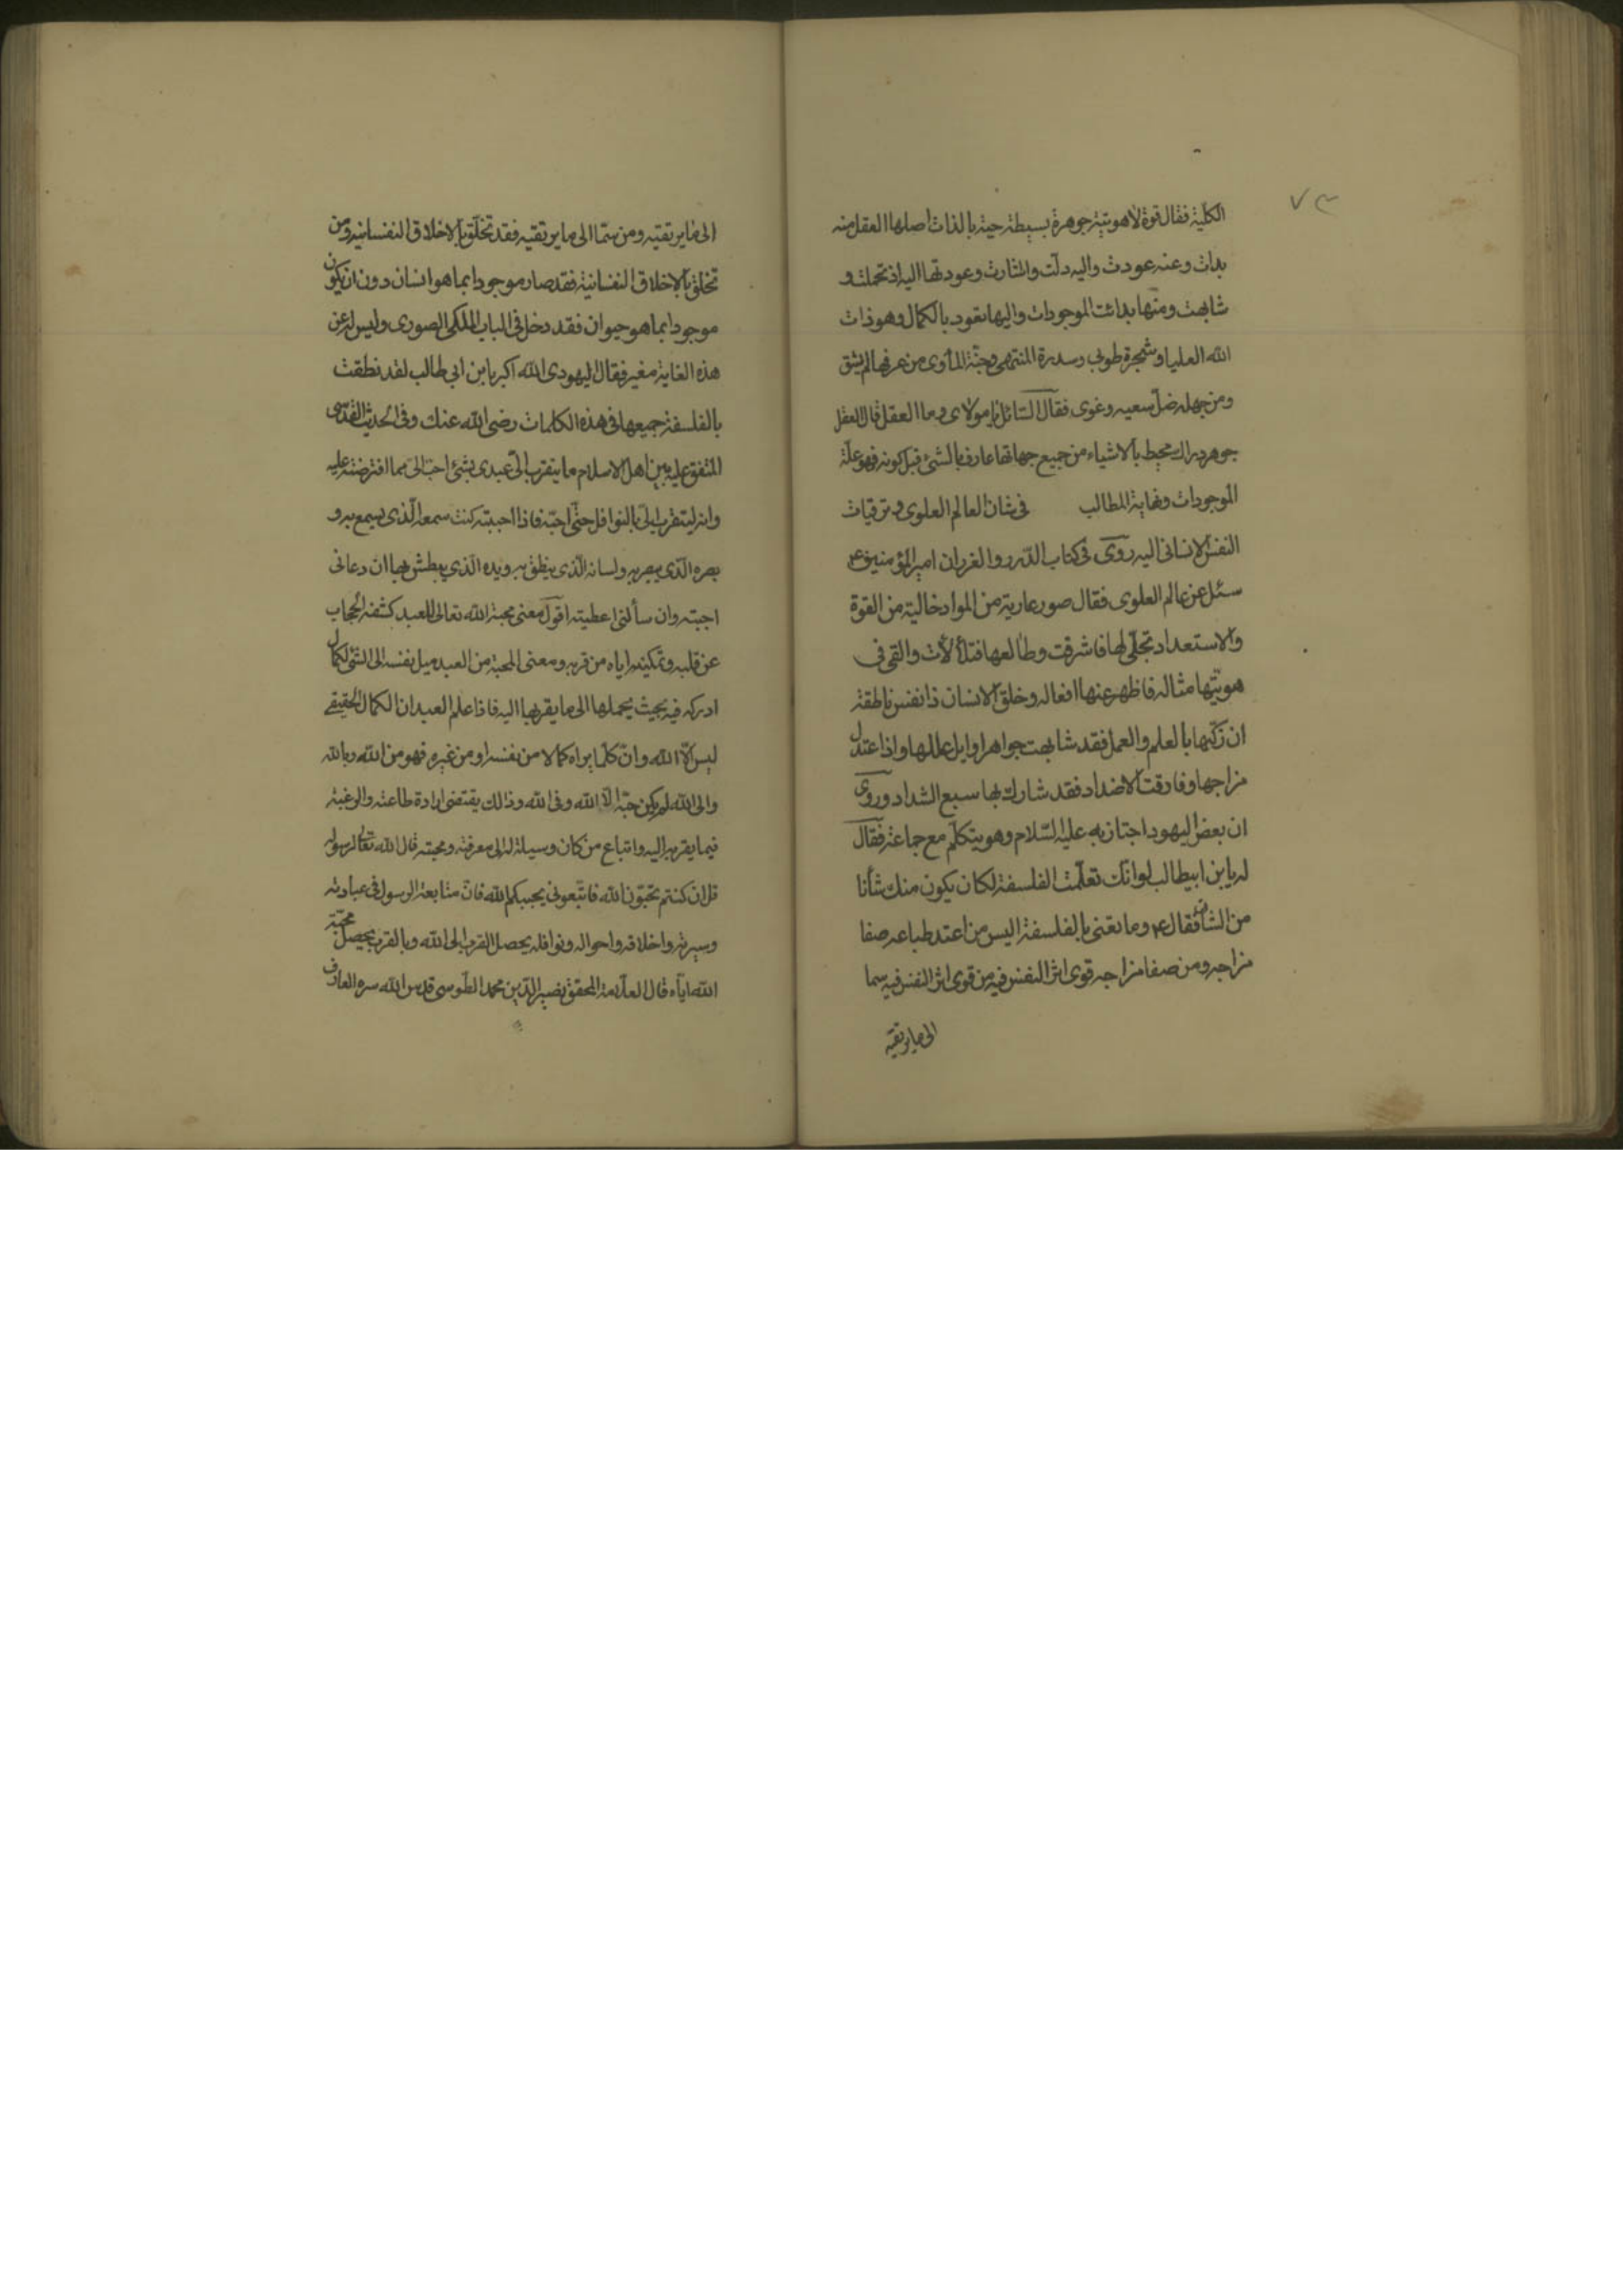 ٧٣
الكلية فقال قوة لاهوتية جوهرة بسيطة حية بالذات اصلها العقل منه
بدات وعنه عودت واليه دلّت واشارت وعودتها اليه اذ كملت و
شابهت ومنها بدائت الموجودات واليها تعود بالكمال وهو ذات
الله العليا وشجرة طوبى وسدرة المنتهى وجنّة المأوى من عرفها لم يشق
ومن جهله ضلّ سعيه وغوى فقال السّائل يا مولاى وما العقل قال العقل
جوهر دراك محيط بالاشياء من جميع جهاتها عارف بالشئ قبل كونه فهو علّة
الموجودات ونهاية المطالب فى شان العالم العلوى وترقيات
النفس الانسانى اليه روى فى كتاب الدّرر والغرر ان امير المؤمنين ع
سئل عن عالم العلوى فقال صور عارية من المواد خالية من القوة
والاستعداد تجلّى لها فاشرقت وطالعها فتلألأت والقى فى
هويّتها مثاله فاظهر عنها افعاله وخلق الانسان ذا نفس ناطقة
ان زكّيها بالعلم والعمل فقد شابهت جواهر اوايل عللها واذا عتدل
مزاجها وفارقت الاضداد فقد شارك بها سبع الشداد وروى
ان بعض اليهود اجتاز به عليه السّلام وهو يتكلّم مع جماعة فقال
له يا بن ابيطالب لو انّك تعلّمت الفلسفة لكان يكون منك شأنا
من الشان فقال ع وما تعنى بالفلسفة اليس من اعتد طباعه صفا
مزاجه ومن صفا مزاجه قوى اثر النفس فيه من قوى اثر النفس فيه سما
الى ما يرتقيه
الى ما يرتقيه ومن سمّا الى ما يرتقيه فقد تخلّق بالاخلاق النفسانيه ومن
تخلق بالاخلاق النفسانية فقد صار موجودا بما هو انسان دون ان يكون
موجودا بما هو حيوان فقد دخل فى الباب الملكى الصورى وليس له عن
هذه الغاية مغير فقال اليهودى الله اكبر يا بن ابى طالب لقد نطقت
بالفلسفة جميعها فى هذه الكلمات رضى الله عنك وفى الحديث القدسى
المتفق عليه بين اهل الاسلام ما يتقرب الىّ عبدى بشئ احبّ الىّ مما افترضته عليه
وانه ليتقرب الىّ بالنوافل حتّى احبّه فاذا احببته كنت سمعه الّذى يسمع به و
بصره الّذى يبصر به ولسانه الّذى ينطق به ويده الّذى يبطش بها ان دعانى
اجبته وان سألنى اعطيته اقول معنى محبة الله تعالى للعبد كشفه الحجاب
عن قلبه وتمكينه اياه من قربه ومعنى المحبة من العبد ميل نفسه الى الشئ لكمال
ادركه فيه بحيث يحملها الى ما يقربها اليه فاذا علم العبد ان الكمال الحقيقى
ليس الّا الله وانّ كلّما يراه كمالا من نفسه او من غيره فهو من الله وبالله
والى الله لم يكن حبّه الّا الله وفى الله وذالك يقتضى ارادة طاعته والرغبة
فيما يقربه اليه واتباع من كان وسيلة له الى معرفته ومحبته قال الله تعالى لرسوله
قل ان كنتم تحبّون الله فاتّبعونى يحببكم الله فانّ متابعة الرسول فى عبادته
وسيرته واخلاقه واحواله ونوافله يحصل القرب الى الله وبالقرب يحصل محبّة
الله ايّاه قال العلّامة المحقق نصير الدّين محمد الطّوسى قدس الله سره العارف